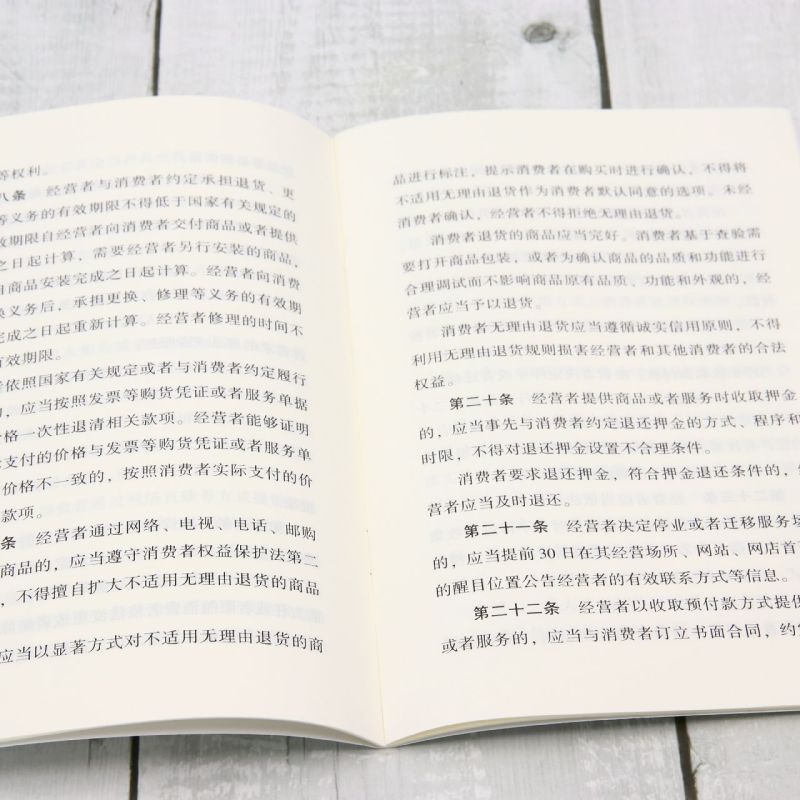 等权利。
八条　经营者与消费者约定承担退货、更
等义务的有效期限不得低于国家有关规定的
效期限自经营者向消费者交付商品或者提供
之日起计算，需要经营者另行安装的商品，
自商品安装完成之日起计算。经营者向消费
换义务后，承担更换、修理等义务的有效期
完成之日起重新计算。经营者修理的时间不
有效期限。
者依照国家有关规定或者与消费者约定履行
的，应当按照发票等购货凭证或者服务单据
价格一次性退清相关款项。经营者能够证明
支付的价格与发票等购货凭证或者服务单
价格不一致的，按照消费者实际支付的价
款项。
条　经营者通过网络、电视、电话、邮购
商品的，应当遵守消费者权益保护法第二
，不得擅自扩大不适用无理由退货的商品
应当以显著方式对不适用无理由退货的商
品进行标注，提示消费者在购买时进行确认，不得将
不适用无理由退货作为消费者默认同意的选项。未经
消费者确认，经营者不得拒绝无理由退货。
消费者退货的商品应当完好。消费者基于查验需
要打开商品包装，或者为确认商品的品质和功能进行
合理调试而不影响商品原有品质、功能和外观的，经
营者应当予以退货。
消费者无理由退货应当遵循诚实信用原则，不得
利用无理由退货规则损害经营者和其他消费者的合法
权益。
第二十条　经营者提供商品或者服务时收取押金
的，应当事先与消费者约定退还押金的方式、程序和
时限，不得对退还押金设置不合理条件。
消费者要求退还押金，符合押金退还条件的，
营者应当及时退还。
第二十一条　经营者决定停业或者迁移服务场
的，应当提前 30 日在其经营场所、网站、网店首
的醒目位置公告经营者的有效联系方式等信息。
第二十二条　经营者以收取预付款方式提供
或者服务的，应当与消费者订立书面合同，约